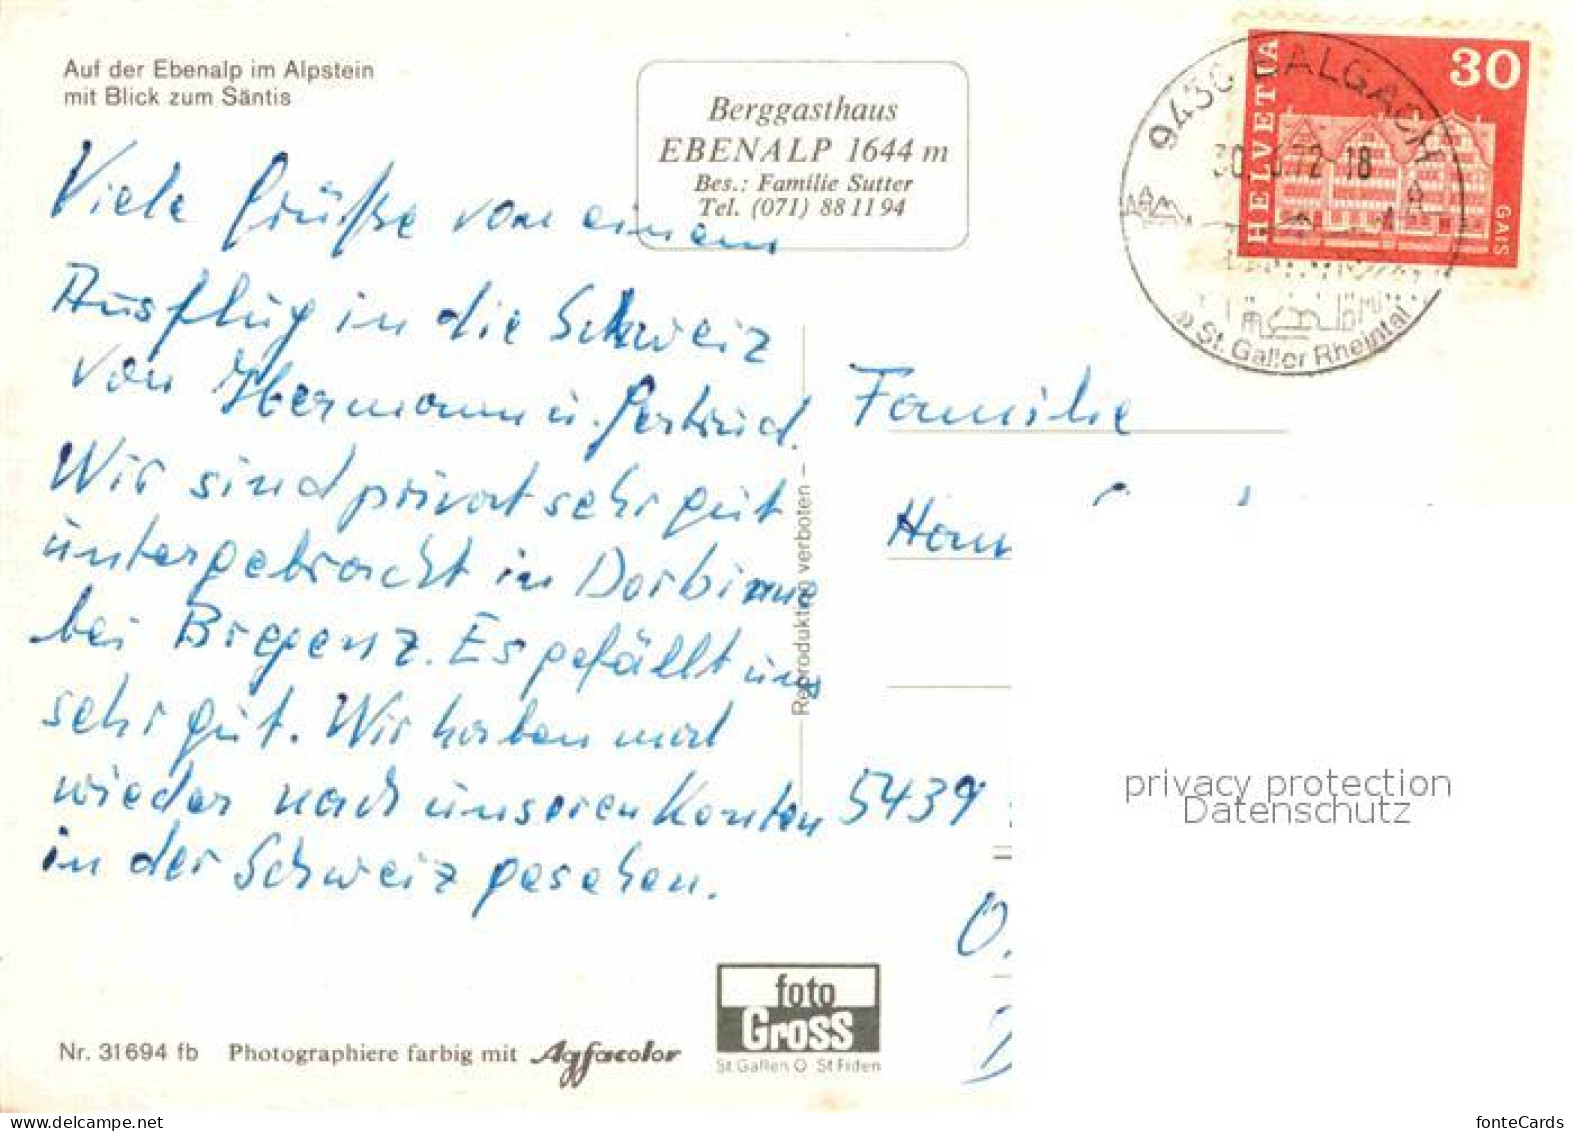 Auf der Ebenalp im Alpstein
mit Blick zum Säntis
Berggasthaus
EBENALP 1644 m
Bes.: Familie Sutter
Tel. (071) 88 11 94
9430 BALGACH
30. 6.72 18
St. Galler Rheintal
HELVETIA
30
GAIS
Viele Grüße von einem
Ausflug in die Schweiz
von Hermann u. Gertrud.
Wir sind privat sehr gut
untergebracht in
bei Bregenz. Es gefällt uns
sehr gut. Wir haben mal
wieder nach unseren Konten
in der Schweiz gesehen.
Reproduktion verboten –
Familie
5439
foto
Gross
St Gallen O St Fiden
Nr. 31694 fb Photographiere farbig mit Agfacolor
privacy protection
Datenschutz
fonteCards